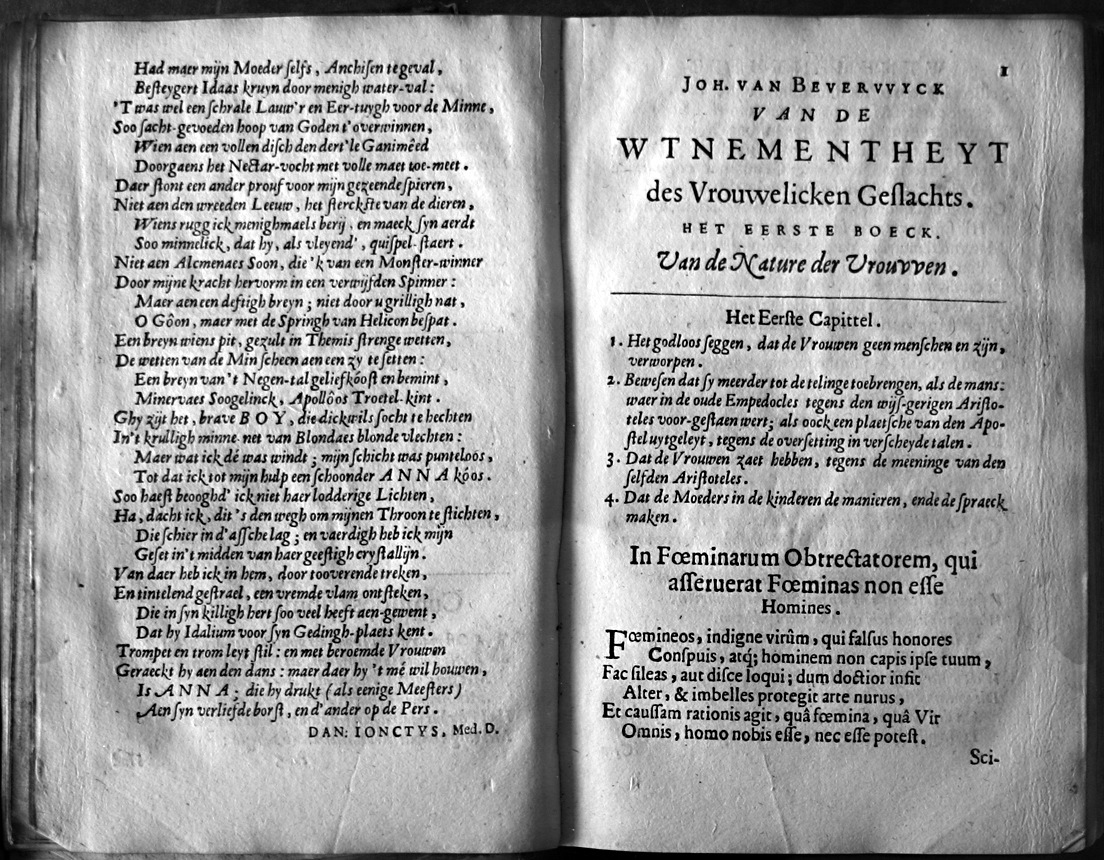 Had maer mijn Moeder ſelfs, Anchiſen te geval,
Beſteygert Idaas kruyn door menigh water-val:
'T was wel een ſchrale Lauw'r en Eer-tuygh voor de Minne,
Soo ſacht-gevoeden hoop van Goden t'overwinnen,
Wien aen een vollen diſch den dert'le Ganimêed
Doorgaens het Nectar-vocht met volle maet toe-meet.
Daer ſtont een ander prouf voor mijn gezeende ſpieren,
Niet aen den wreeden Leeuw, het ſterckſte van de dieren,
Wiens rugg ick menighmaels berij, en maeck ſyn aerdt
Soo minnelick, dat hy, als vleyend', quiſpel-ſtaert.
Niet aen Alcmenaes Soon, die 'k van een Monſter-winner
Door mijne kracht hervorm in een verwijfden Spinner:
Maer aen een deftigh breyn; niet door u grilligh nat,
O Gôon, maer met de Springh van Helicon beſpat.
Een breyn wiens pit, gezult in Themis ſtrenge wetten,
De wetten van de Min ſcheen aen een zy te ſetten:
Een breyn van 't Negen-tal geliefkóoſt en bemint,
Minervaes Soogelinck, Apollôos Troetel-kint.
Ghy zijt het, brave BOY, die dickwils ſocht te hechten
In't krulligh minne-net van Blondaes blonde vlechten:
Maer wat ick dé was windt; mijn ſchicht was punteloos,
Tot dat ick tot mijn hulp een ſchoonder ANNA kôos.
Soo haeſt beooghd' ick niet haer lodderige Lichten,
Ha, dacht ick, dit 's den wegh om mijnen Throon te ſtichten,
Die ſchier in d'aſſche lag; en vaerdigh heb ick mijn
Geſet in't midden van haer geeſtigh cryſtallijn.
Van daer heb ick in hem, door tooverende treken,
En tintelend geſtrael, een vremde vlam ontſteken,
Die in ſyn killigh hert ſoo veel heeft aen-gewent,
Dat hy Idalium voor ſyn Gedingh-plaets kent.
Trompet en trom leyt ſtil: en met beroemde Vrouwin
Geraeckt hy aen den dans: maer daer hy 't mé wil houwen,
Is ANNA; die hy drukt (als eenige Meeſters)
Aen ſyn verliefde borſt, en d'ander op de Pers.
DAN: IONCTYS, Med. D.
1
JOH. VAN BEVERVVYCK
VAN DE
WTNEMENTHEYT
des Vrouwelicken Geſlachts.
HET EERSTE BOECK.
Van de Nature der Vrouvven.
Het Eerſte Capittel.
1. Het godloos ſeggen, dat de Vrouwen geen menſchen en zijn,
verworpen.
2. Beweſen dat ſy meerder tot de telinge toebrengen, als de mans:
waer in de oude Empedocles tegens den wijſ-gerigen Ariſto-
teles voor-geſtaen wert; als oock een plaetſche van den Apo-
ſtel uytgeleyt, tegens de overſetting in verſcheyde talen.
3. Dat de Vrouwen zaet hebben, tegens de meeninge van den
ſelfden Ariſtoteles.
4. Dat de Moeders in de kinderen de manieren, ende de ſpraeck
maken.
In Fœminarum Obtrectatorem, qui
aſſeruerat Fœminas non eſſe
Homines.
Fœmineos, indigne virûm, qui falſus honores
Conſpuis, atq; hominem non capis ipſe tuum,
Fac ſileas, aut diſce loqui; dum doctior inſit
Alter, & imbelles protegit arte nurus,
Et cauſſam rationis agit, quâ fœmina, quâ Vir
Omnis, homo nobis eſſe, nec eſſe poteſt.
Sci-